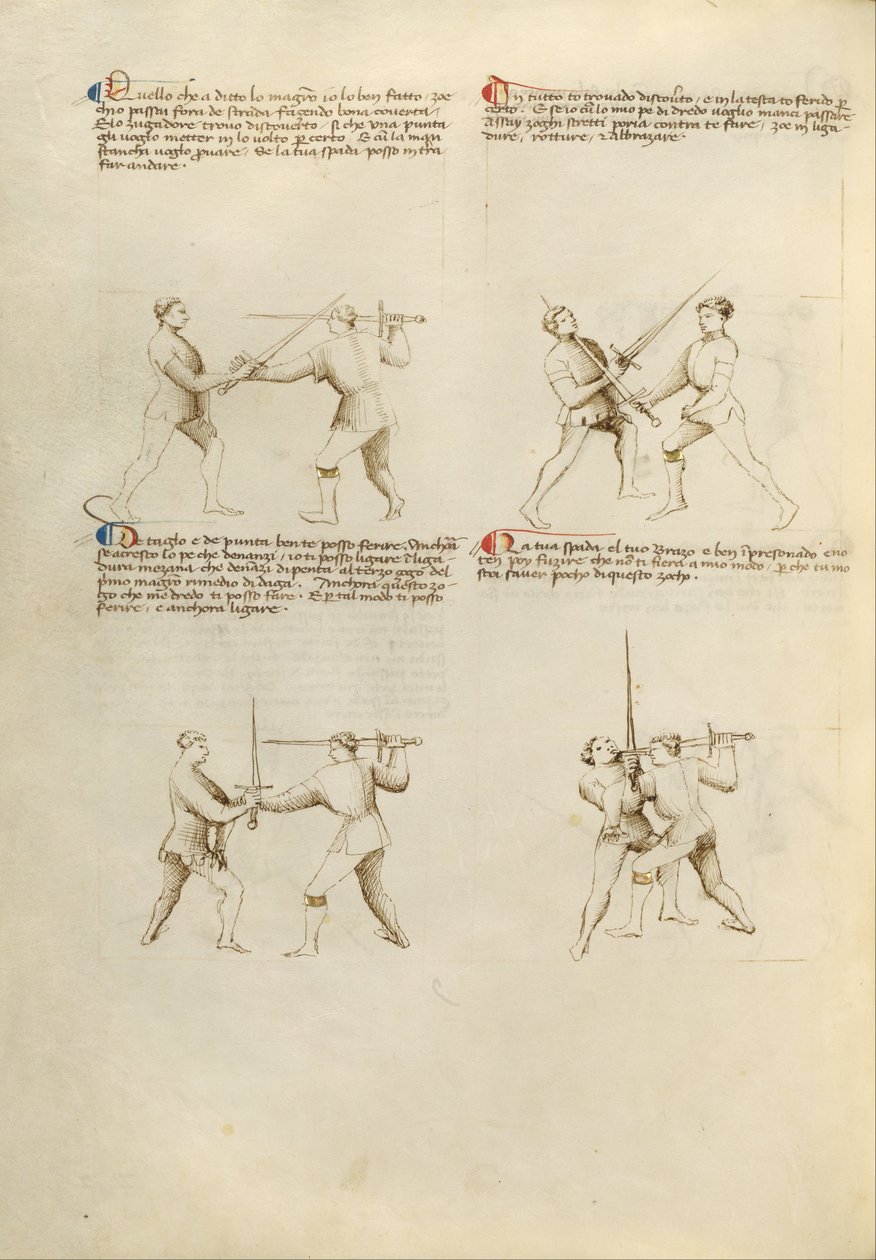 Quello che a ditto lo magro io lo ben fatto / zoe
chio passai fora de strada facendo bona coverta /
E lo zugadore trovo discoverto / si che una punta
gli voglio metter in lo volto per certo. E cum la man
stancha voglio provare / Se la tua spada posso in terra
far andare.
In tutto to trovado discoverto / e in la testa to ferido per
certo. E se io cum lo mio pe di dredo voglio inanci passare
Assay zoghi stretti poria contra te fare / zoe in liga-
dure / rotture / e abbrazare.
De taglo e de punta ben te posso ferire. Anchora
se acresco lo pe che denanzi / io ti posso ligare in liga
dura mezana che denanzi dipenta al terzo zogo del
primo magro rimedio di daga. Anchora questo zo-
go che me dredo ti posso fare. E per tal modo ti posso
ferire / e anchora ligare.
La tua spada el tuo brazo e ben inpresonado e no
ten poy fuzire che non ti fiera a mio modo / per che tu mo
stri saver pocho di questo zocho.